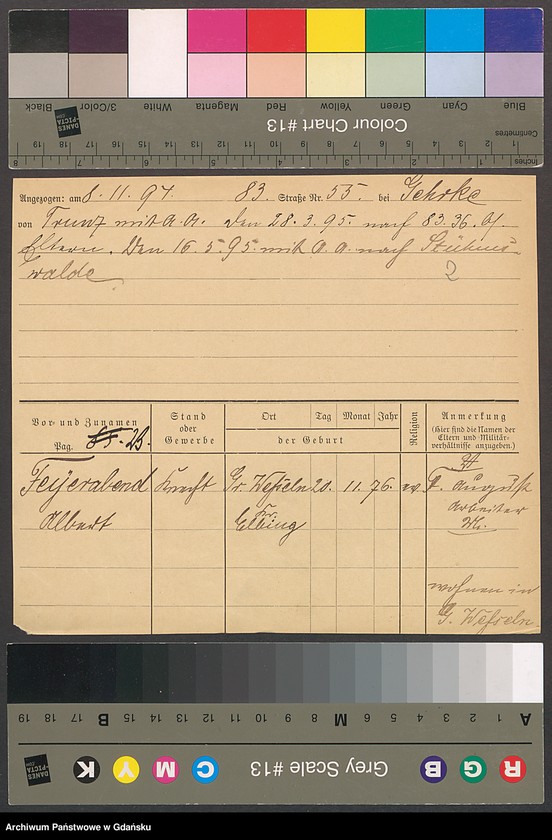 Blue Cyan Green Yellow Red Magenta White 3/Color Black
Colour Chart #13
Centimetres
Inches
DANES PICTA
Angezogen: am 8. 11. 94 83. Straße Nr. 55. bei Gehrke
von Trunz mit a. a. den 28. 3. 95. nach 83. 36.
Eltern. Den 16. 5. 95. mit a. a. nach
walde 2
Vor- und Zunamen
Pag. 23.
Stand
oder
Gewerbe
Ort Tag Monat Jahr
der Geburt
Religion
Anmerkung
(Hier sind die Namen der
Eltern und Militär-
verhältnisse anzugeben.)
Feyerabend Knecht Gr. Wesseln 20. 11. 76. ev. August
Albert Kr. Elbing Arbeiter
wohnen in
G. Wesseln
A 1 2 3 4 5 6 M 8 9 10 11 12 13 14 15 B 17 18 19
R G B Grey Scale #13 C M Y K
DANES PICTA
Archiwum Państwowe w Gdańsku